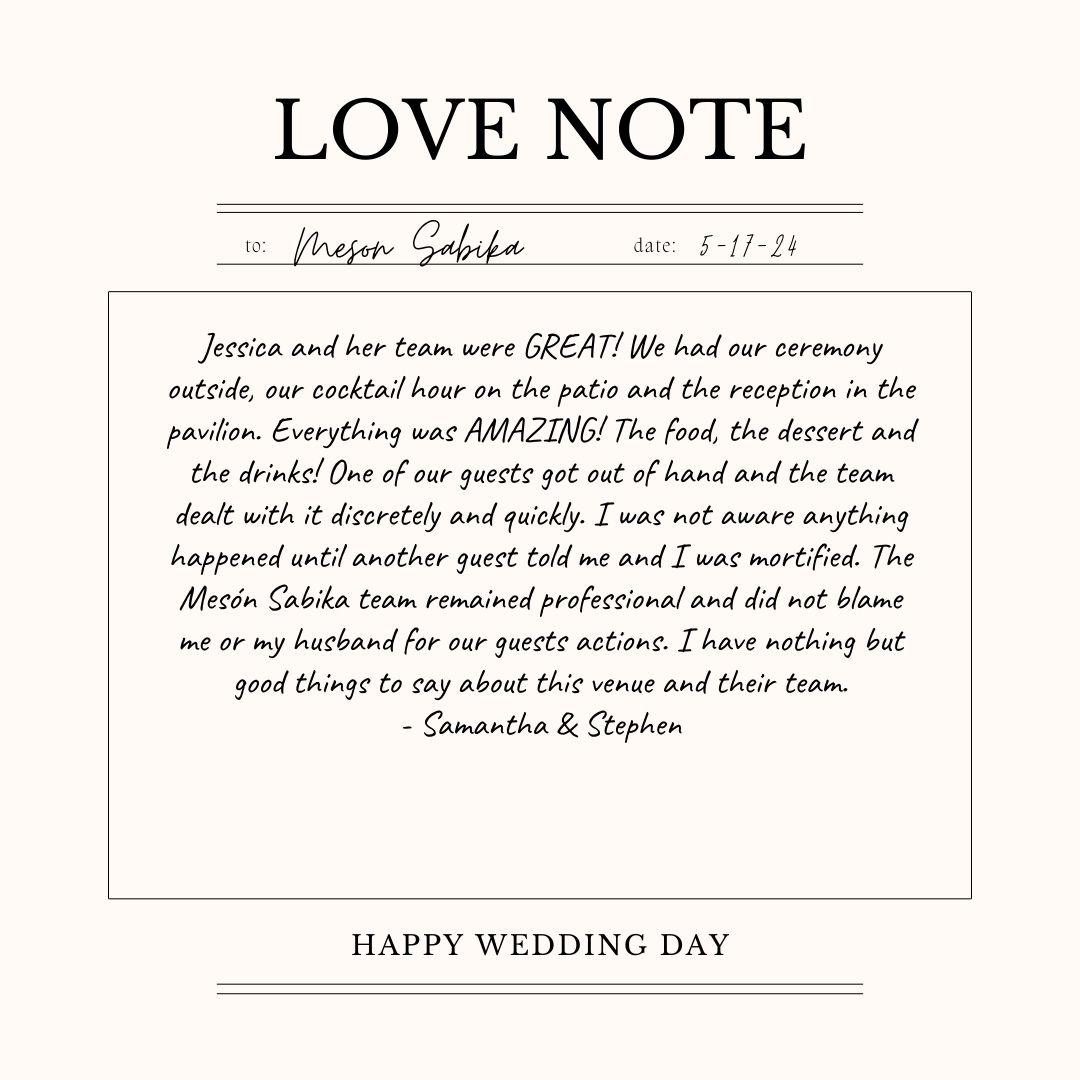 LOVE NOTE
to: Meson Sabika date: 5-17-24
Jessica and her team were GREAT! We had our ceremony
outside, our cocktail hour on the patio and the reception in the
pavilion. Everything was AMAZING! The food, the dessert and
the drinks! One of our guests got out of hand and the team
dealt with it discretely and quickly. I was not aware anything
happened until another guest told me and I was mortified. The
Mesón Sabika team remained professional and did not blame
me or my husband for our guests actions. I have nothing but
good things to say about this venue and their team.
- Samantha & Stephen
HAPPY WEDDING DAY